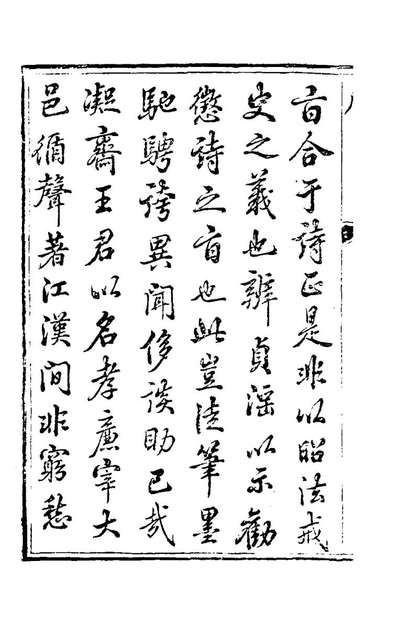 旨合于詩正是非以昭法戒
史之義也辨貞淫以示勸
懲詩之旨也此豈徒筆墨
馳騁誇異聞侈談助已哉
凝齋王君以名孝廉宰大
邑循聲著江漢間非窮愁